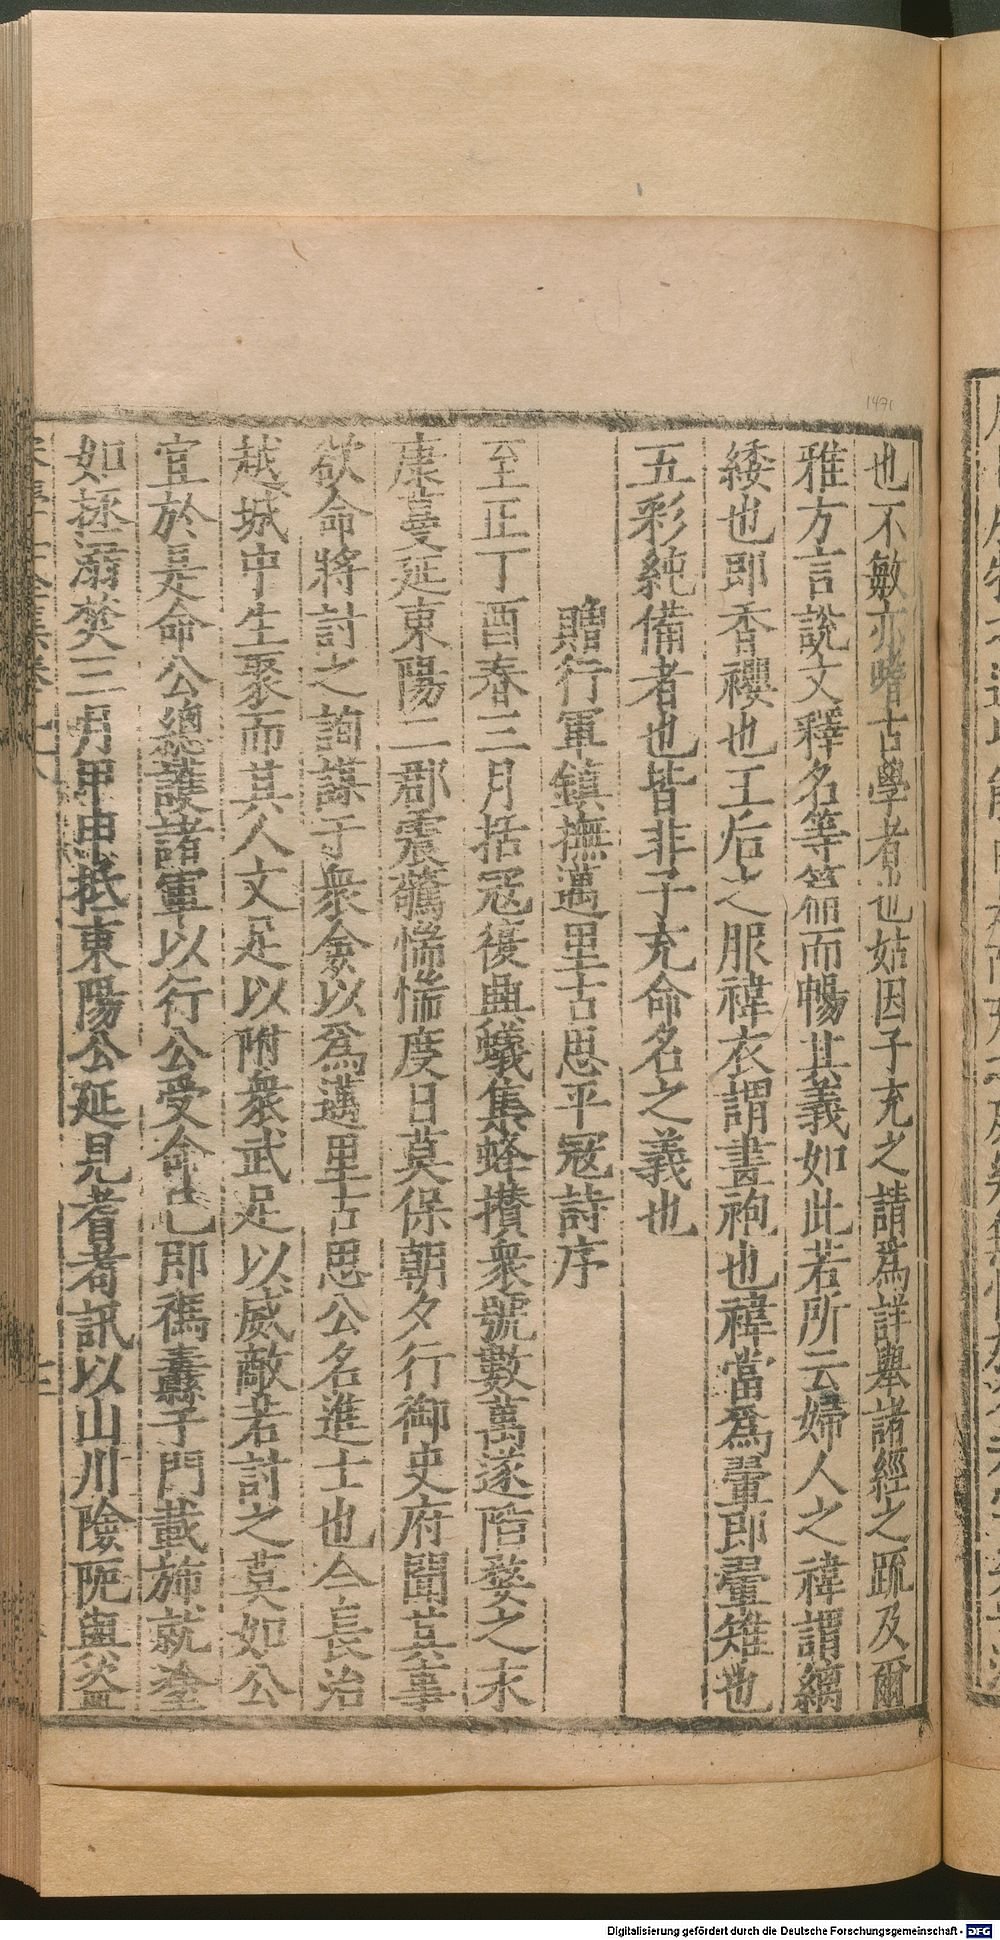 也不敏亦嗜古學者也姑因子充之請爲詳舉諸經之疏及爾
雅方言說文釋名等篇而暢其義如此若所云婦人之褘謂縭
緌也即香纓也王后之服褘衣謂畫袍也褘當爲翬即翬雉也
五彩純備者也皆非子充命名之義也
贈行軍鎮撫邁里古思平冦詩序
至正丁酉春三月括冦復興蟻集蜂攅衆號數萬遂陷婺之永
康蔓延東陽二郡震驚惴惴度日莫保朝夕行御史府聞其事
欲命將討之詢謀于衆僉以爲邁里古思公名進士也今長治
越城中生聚而其人文足以附衆武足以威敵若討之莫如公
宜於是命公總護諸軍以行公受命已即禡纛于門載斾就塗
如拯溺焚三月甲申抵東陽公延見耆耇訊以山川險阨與盜
1471
Digitalisierung gefördert durch die Deutsche Forschungsgemeinschaft - DFG